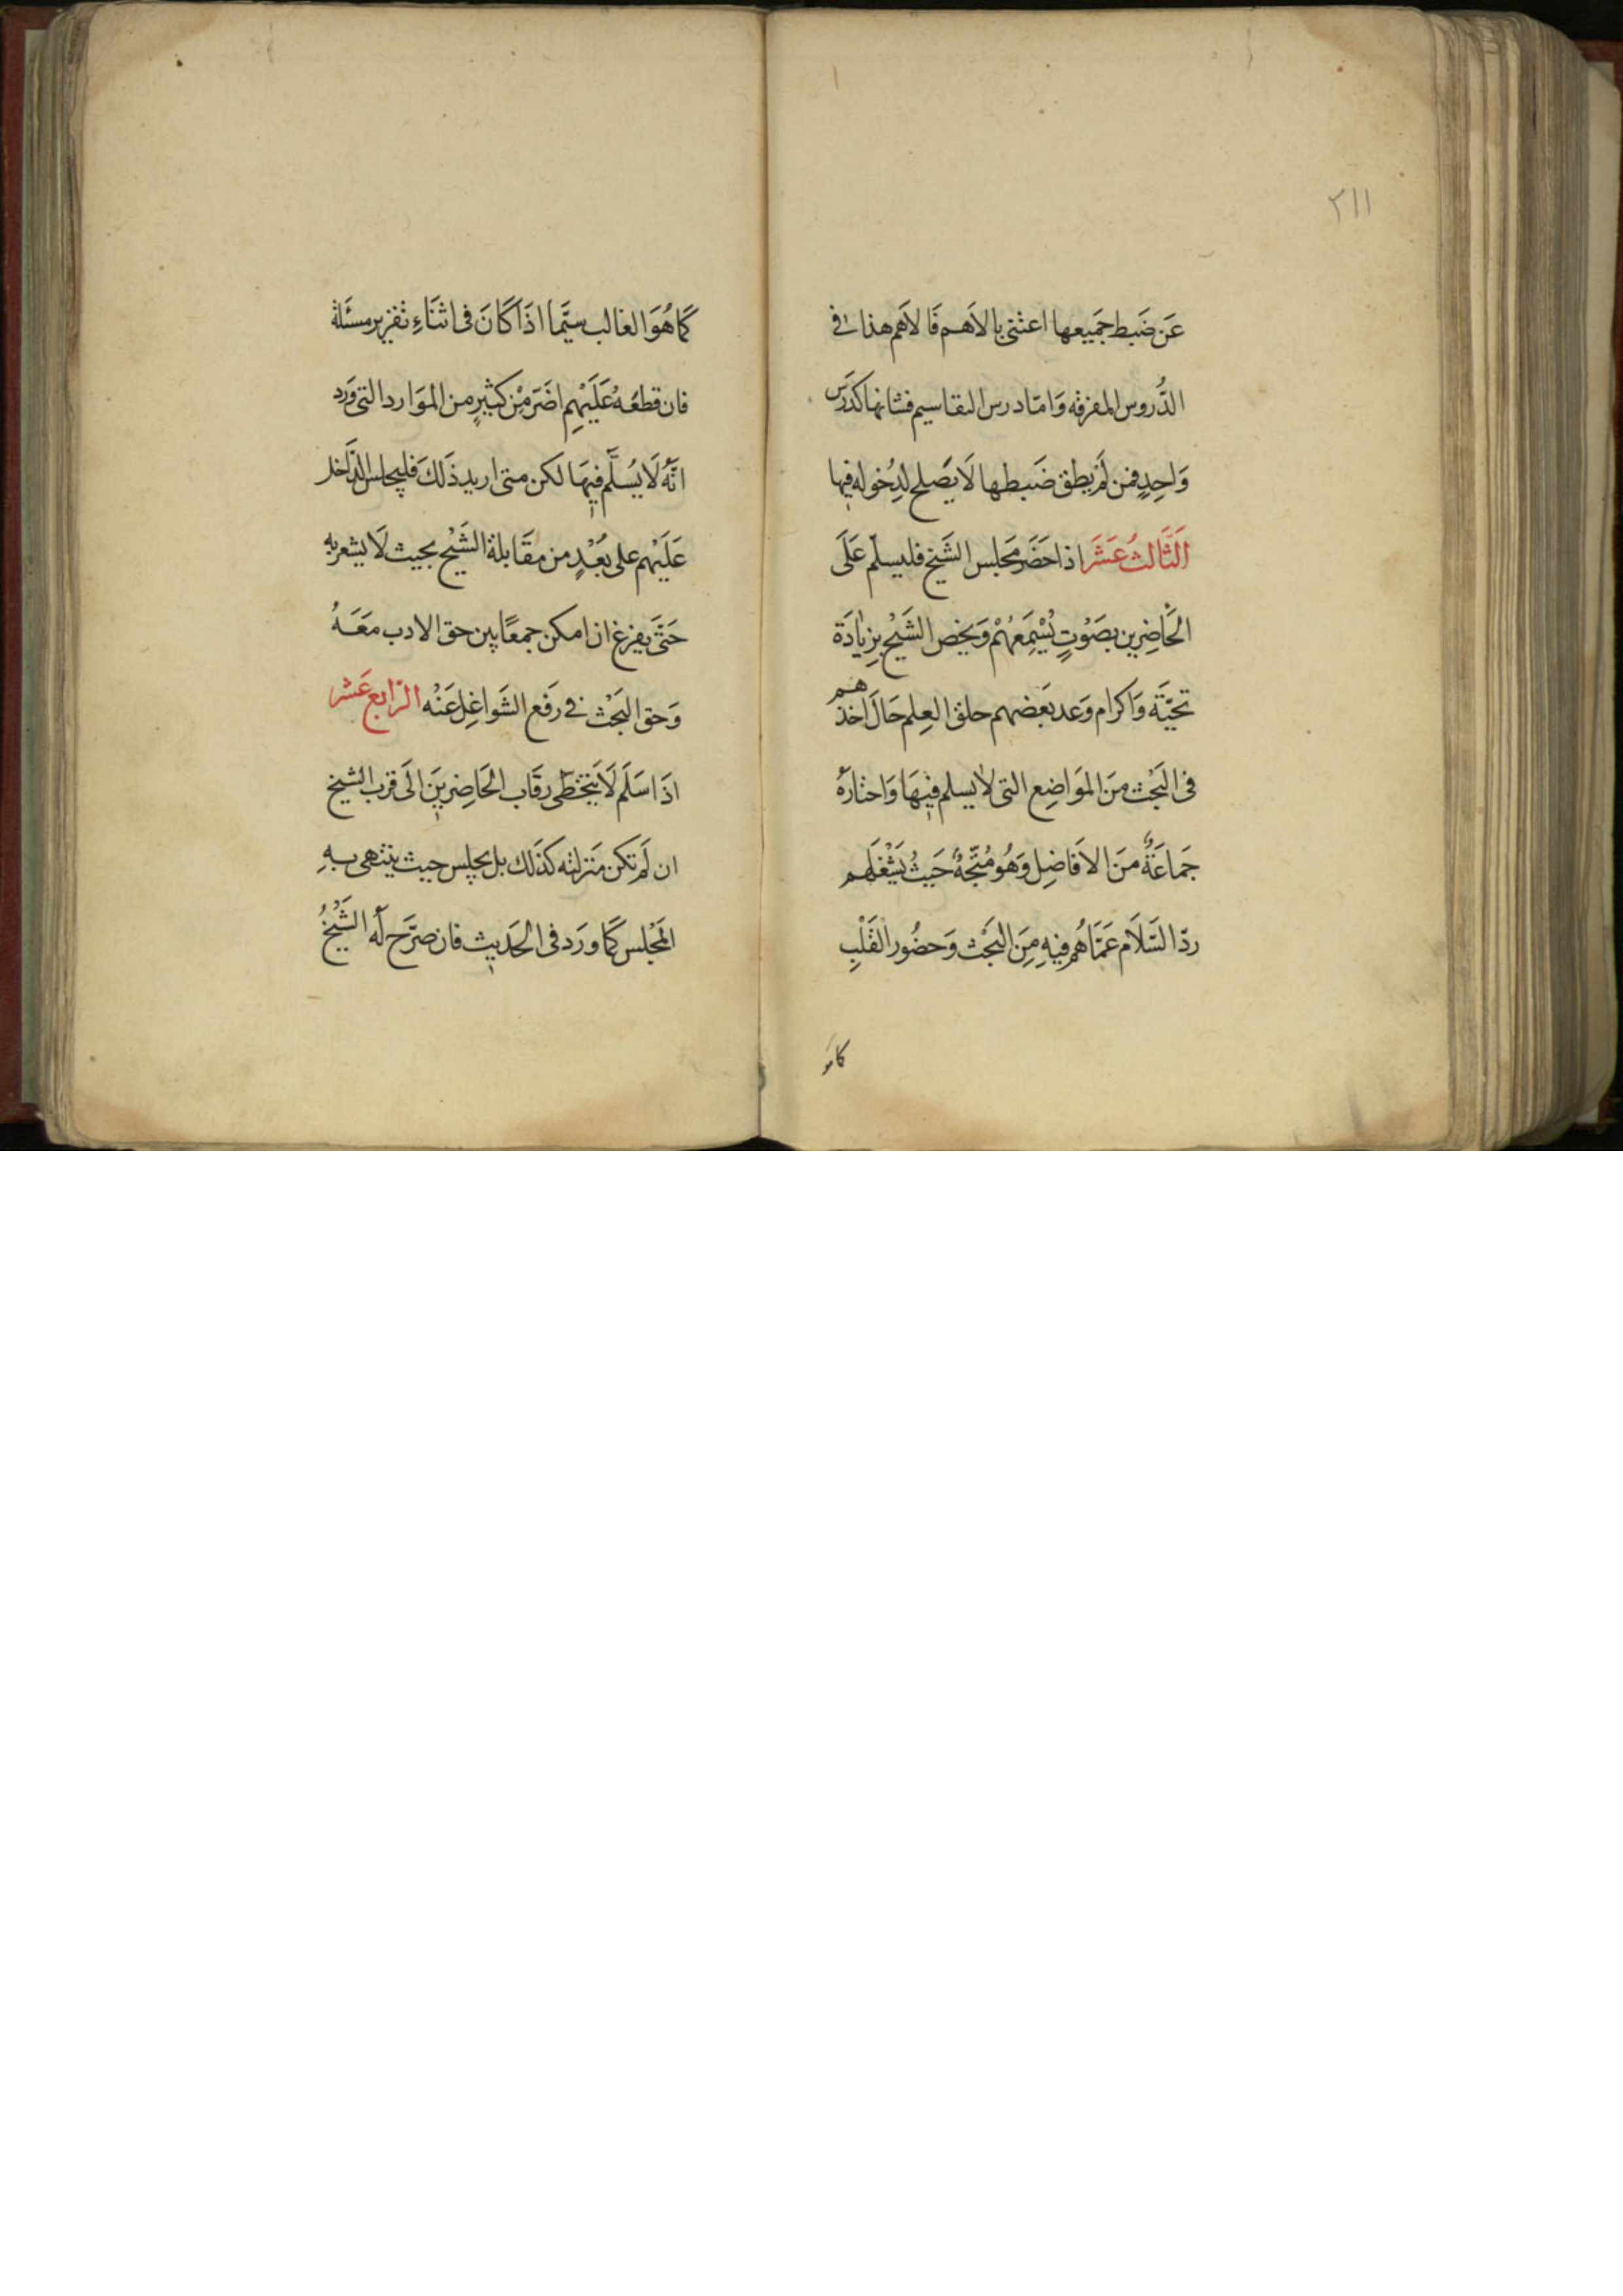 ٢١١
عَن ضَبط جَمَيعها اعتنى بالاَهم فَالاَهم هذا فى
الدُّروس المفرقه وَامّا درس التقاسيم فشانها كدَرَس
وَاحِدٍ فمن لَم يطق ضَبطها لاَ يَصلح لدِخوله فيها
اَلثَّالثُ عَشَرَ اذا حَضَر مَجلس الشَيخ فليسلّم عَلَى
الحَاضِرين بصَوْتٍ يُسْمِعَهُمْ وَيخص الشَيْخ بِزيادَة
تحيّة وَاكرام وَعد بَعَضهم حلق العِلم حَالَ اخذهم
فى البَحْث مِنَ المَوَاضِع التى لا يسلم فيهَا وَاختارهُ
جَماعَةٌ مِنَ الاَفَاضِل وَهُو مُتّجهٌ حَيثُ يَشْغَلَهم
ردّ السّلاَم عَمّاَ هُم فيهِ مِنَ البَحْث وَحضُور القَلْبِ
كاهو
كَمَا هُوَ الغالب سيَّما اذَا كاَنَ فى اثنَاءِ تقرير مسئَلة
فان قطعَهُ عَلَيْهِم اضَرّ مِنْ كثيرٍ من المَوَارد التى وَرَد
انَّهُ لاَ يُسَلَّم فيهَا لَكن متى اريد ذَلكَ فليجلس الدّاَخل
عَلَيْهم على بُعْدٍ من مقَابلة الشَيْخ بحيث لاَ يشعر به
حَتَّى يفرغ ان امكن جمعًا بين حق الادب مَعَهُ
وَحق البَحْث فى رَفع الشَواغِل عَنْه الرّابع عَشر
اذَا سَلَم لاَ يَتخَطّى رقَاب الحَاضِرينَ الَى قرب الشيخ
ان لَم تكن مَنزلته كذَلك بل يجلس حيث ينتهى بهِ
المَجْلس كمَا ورَد فى الحَديث فان صَرّح لَهُ الشَيْخُ